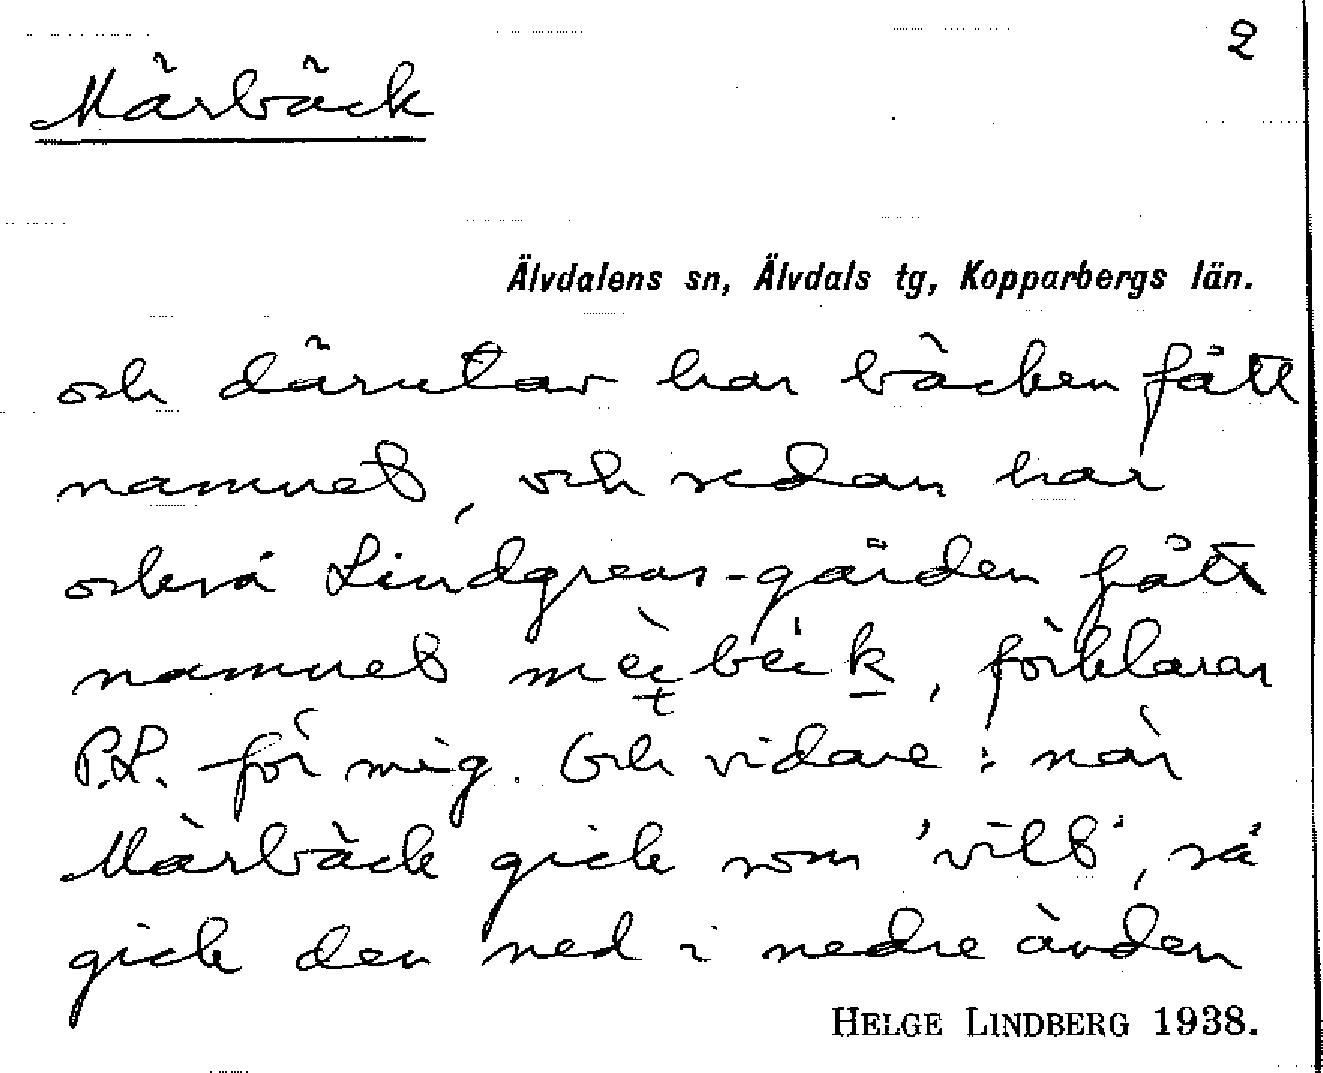 2
Märbäck
Älvdalens sn, Älvdals tg, Kopparbergs län.
och därutav har bäcken fått
namnet, och sedan har
också Lindgrens-gården fått
namnet , förklarar
P.L. för mig. Och vidare: när
Märbäck gick som 'vilt', så
gick den ned i nedre änden
HELGE LINDBERG 1938.